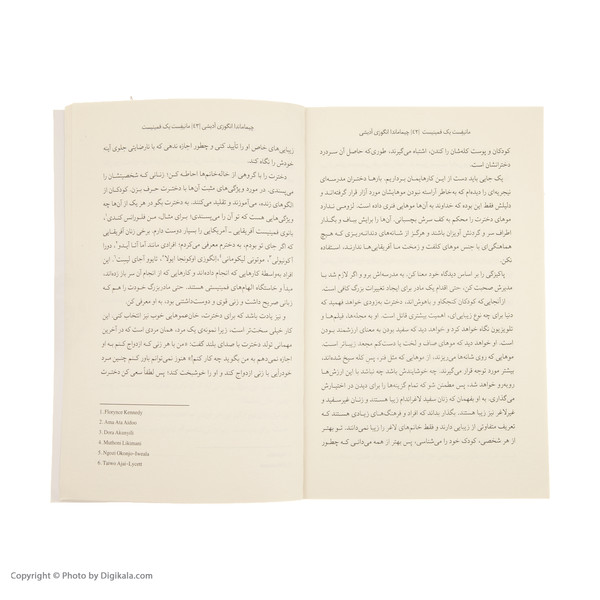 مانیفست یک فمینیست |۴۲| چیماماندا انگوزی آدیشی
کودکان و پوست کله‌شان را کندن، اشتباه می‌گیرند، طوری‌که حاصل آن سردرد
دخترانشان است.
یک جایی باید دست از این کارهایمان برداریم. بارها دختران مدرسه‌ای
نیجریه‌ای را دیده‌ام که به‌خاطر آراسته نبودن موهایشان مورد آزار قرار گرفته‌اند و
دلیلش فقط این بوده که خداوند به آن‌ها موهایی فنری داده است. لزومی ندارد
موهای دخترت را محکم به کف سرش بچسبانی. آن‌ها را برایش بباف و بگذار
اطراف سر و گردنش آویزان باشند. هرگز از شانه‌های دندانه‌ریزی که هیچ
هماهنگی‌ای با جنس موهای کلفت و زمخت ما آفریقایی‌ها ندارند، استفاده
نکن.
پاکیزگی را بر اساس دیدگاه خود معنا کن. به مدرسه‌اش برو و اگر لازم شد با
مدیرش صحبت کن. حتی اقدام یک مادر برای ایجاد تغییرات بزرگ کافی است.
ازآنجایی‌که کودکان کنجکاو و باهوش‌اند، دخترت به‌زودی خواهد فهمید که
دنیا برای چه نوع زیبایی‌ای، اهمیت بیشتری قائل است. او به مجله‌ها، فیلم‌ها و
تلویزیون نگاه خواهد کرد و خواهد دید که سفید بودن به معنای ارزشمند بودن
است. او خواهد دید که موهای صاف و لَخت یا دست‌کم نیمه‌جعد زیباتر است.
موهایی که روی شانه‌ها می‌ریزند، از موهایی که مثل فنر، پس کله سیخ شده‌اند،
بیشتر مورد توجه قرار می‌گیرند. چه خوشایندش باشد چه نباشد با این ارزش‌ها
روبه‌رو خواهد شد، پس مطمئن شو که تمام گزینه‌ها را برای دیدن در اختیارش
می‌گذاری. به او بفهمان که زنان سفید لاغراندام زیبا هستند و زنان غیرسفید و
غیرلاغر نیز زیبا هستند. بگذار بداند که افراد و فرهنگ‌های زیادی هستند که
تعریف متفاوتی از زیبایی دارند و فقط خانم‌های لاغر را زیبا نمی‌دانند. تو بهتر
از هر شخصی، کودک خود را می‌شناسی، پس بهتر از همه می‌دانی که چطور
چیماماندا انگوزی آدیشی |۴۳| مانیفست یک فمینیست
زیبایی‌های خاص او را تأیید کنی و چطور اجازه ندهی که با نارضایتی جلوی آینه
خودش را نگاه کند.
دخترت را با گروهی از خاله‌خانم‌ها احاطه کن؛ زنانی که شخصیتشان را
می‌پسندی. در مورد ویژگی‌های مثبت آن‌ها با دخترت حرف بزن. کودکان از
الگوهای زنده، می‌آموزند و تقلید می‌کنند. به دخترت بگو در هر یک از آن‌ها چه
ویژگی‌هایی هست که تو آن را می‌پسندی؛ برای مثال، من فلورانس کندی۱،
بانوی فمینیست آفریقایی ـ آمریکایی را بسیار دوست دارم. برخی زنان آفریقایی
که اگر جای تو بودم، به دخترم معرفی می‌کردم؛ افرادی مانند آما آتا آیدو۲، دورا
آکونیولی۳، موتونی لیکومانی۴، انگوزی اوکونجا ایوِلا۵، تایوو آجای لیست۶. این
افراد به‌واسطهٔ کارهایی که انجام داده‌اند و کارهایی که از انجام آن سر باز زده‌اند،
مبدأ و خاستگاه الهام‌های فمینیستی هستند. حتی مادربزرگ خودت را هم که
زبانی صریح داشت و زنی قوی و دوست‌داشتنی بود، به او معرفی کن.
و نیز یادت باشد که برای دخترت، خان‌عموهایی خوب نیز انتخاب کنی. این
کار خیلی سخت‌تر است، زیرا نمونه‌ی یک مرد، همان مردی است که در آخرین
مهمانی تولد دخترت با صدای بلند گفت: «من با هر زنی که ازدواج کنم به او
اجازه نمی‌دهم به من بگوید چه کار کنم!» هنوز نمی‌توانم باور کنم چنین مرد
خودرأیی با زنی ازدواج کند و او را خوشبخت کند؛ پس لطفاً سعی کن دخترت
1. Florynce Kennedy
2. Ama Ata Aidoo
3. Dora Akunyili
4. Muthoni Likimani
5. Ngozi Okonjo-Iweala
6. Taiwo Ajai-Lycett
Copyright © Photo by Digikala.com